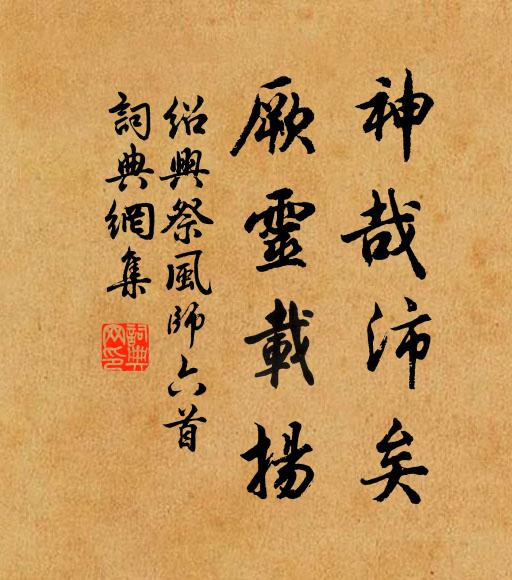 神哉沛矣
厥靈載揚
紹興祭風師六首
詞典網集
詞典网印